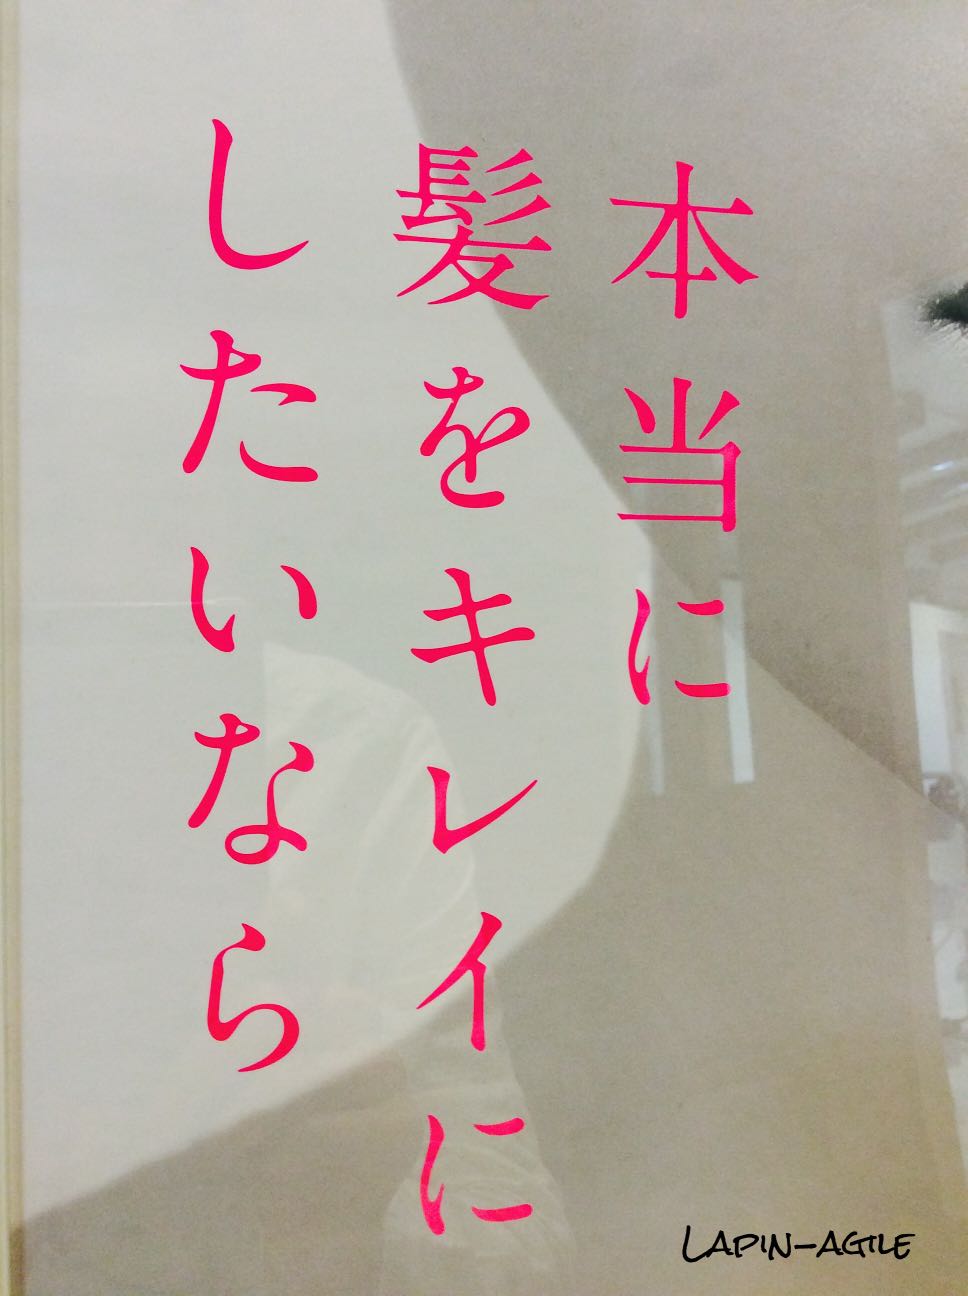 本当に
髪をキレイに
したいなら
LAPIN-AGILE